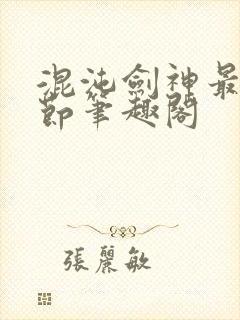 混沌劍神最
節筆趣閣
張麗敏